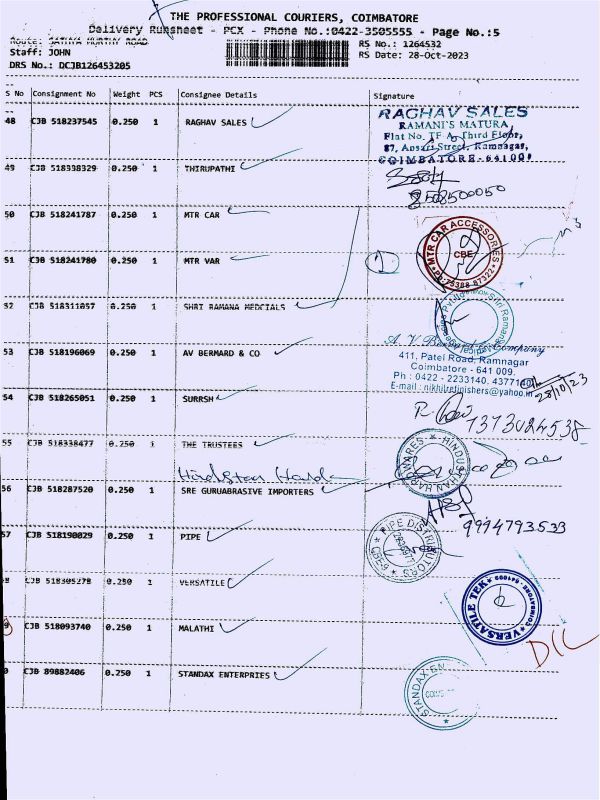 THE PROFESSIONAL COURIERS, COIMBATORE
Delivery Runsheet - PCX - Phone No.:0422-3505555 - Page No.:5
Route: SATHYA MURTHY ROAD
RS No.: 1264532
Staff: JOHN
RS Date: 28-Oct-2023
DRS No.: DCJB126453205
S No Consignment No Weight PCS Consignee Details Signature
48 CJB 518237545 0.250 1 RAGHAV SALES
RAGHAV SALES
RAMANI'S MATURA
Flat No. TF-A, Third Floor,
87, Ansari Street, Ramnagar,
COIMBATORE - 641 009
49 CJB 518398329 0.250 1 THIRUPATHI
50 CJB 518241787 0.250 1 MTR CAR
MTR CAR ACCESSORIES
CBE
Ph:75388 87322
51 CJB 518241780 0.250 1 MTR VAR
1
52 CJB 518311057 0.250 1 SHRI RAMANA MEDCIALS
53 CJB 518196069 0.250 1 AV BERMARD & CO
Company
411, Patel Road, Ramnagar
Coimbatore - 641 009.
Ph : 0422 - 2233140, 4377140
E-mail : nikhilrefinishers@yahoo.in
28/10/23
54 CJB 518265051 0.250 1 SURRSH
7373024538
55 CJB 518338477 0.250 1 THE TRUSTEES
HINDUSTHAN HARDWARES
56 CJB 518287520 0.250 1 SRE GURUABRASIVE IMPORTERS
9994793533
57 CJB 518190029 0.250 1 PIPE
PIPE DISTRIBUTORS
CBE-9
58 CJB 518305278 0.250 1 VERSATILE
VERSATILE TEK
COIMBATORE - 641009
9 CJB 518093740 0.250 1 MALATHI
D/L
0 CJB 89882406 0.250 1 STANDAX ENTERPRIES
STANDAX EN